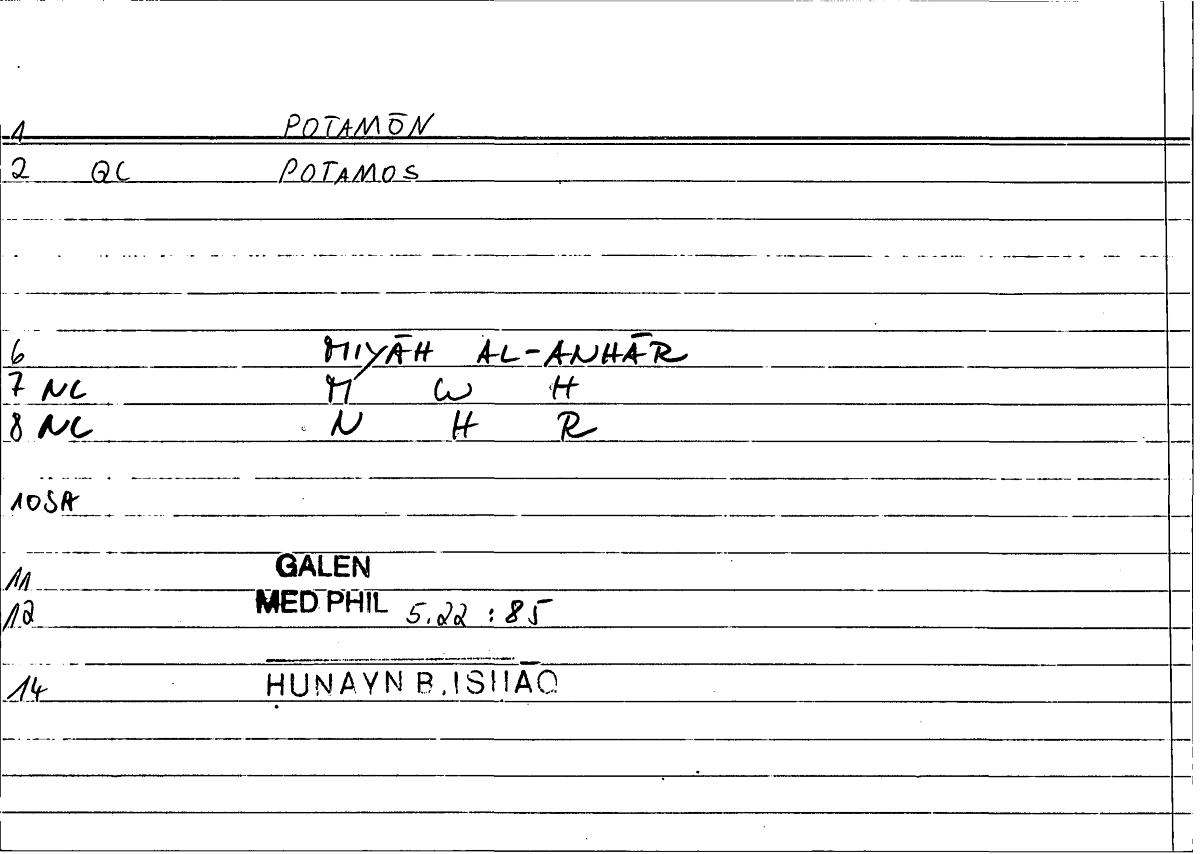 1 POTAMŌN
2 QC POTAMOS
6 MIYĀH AL-ANHĀR
7 NC M W H
8 NC N H R
10 SA
11 GALEN
12 MED PHIL 5.22 : 85
14 ḤUNAYN B. ISḤĀQ